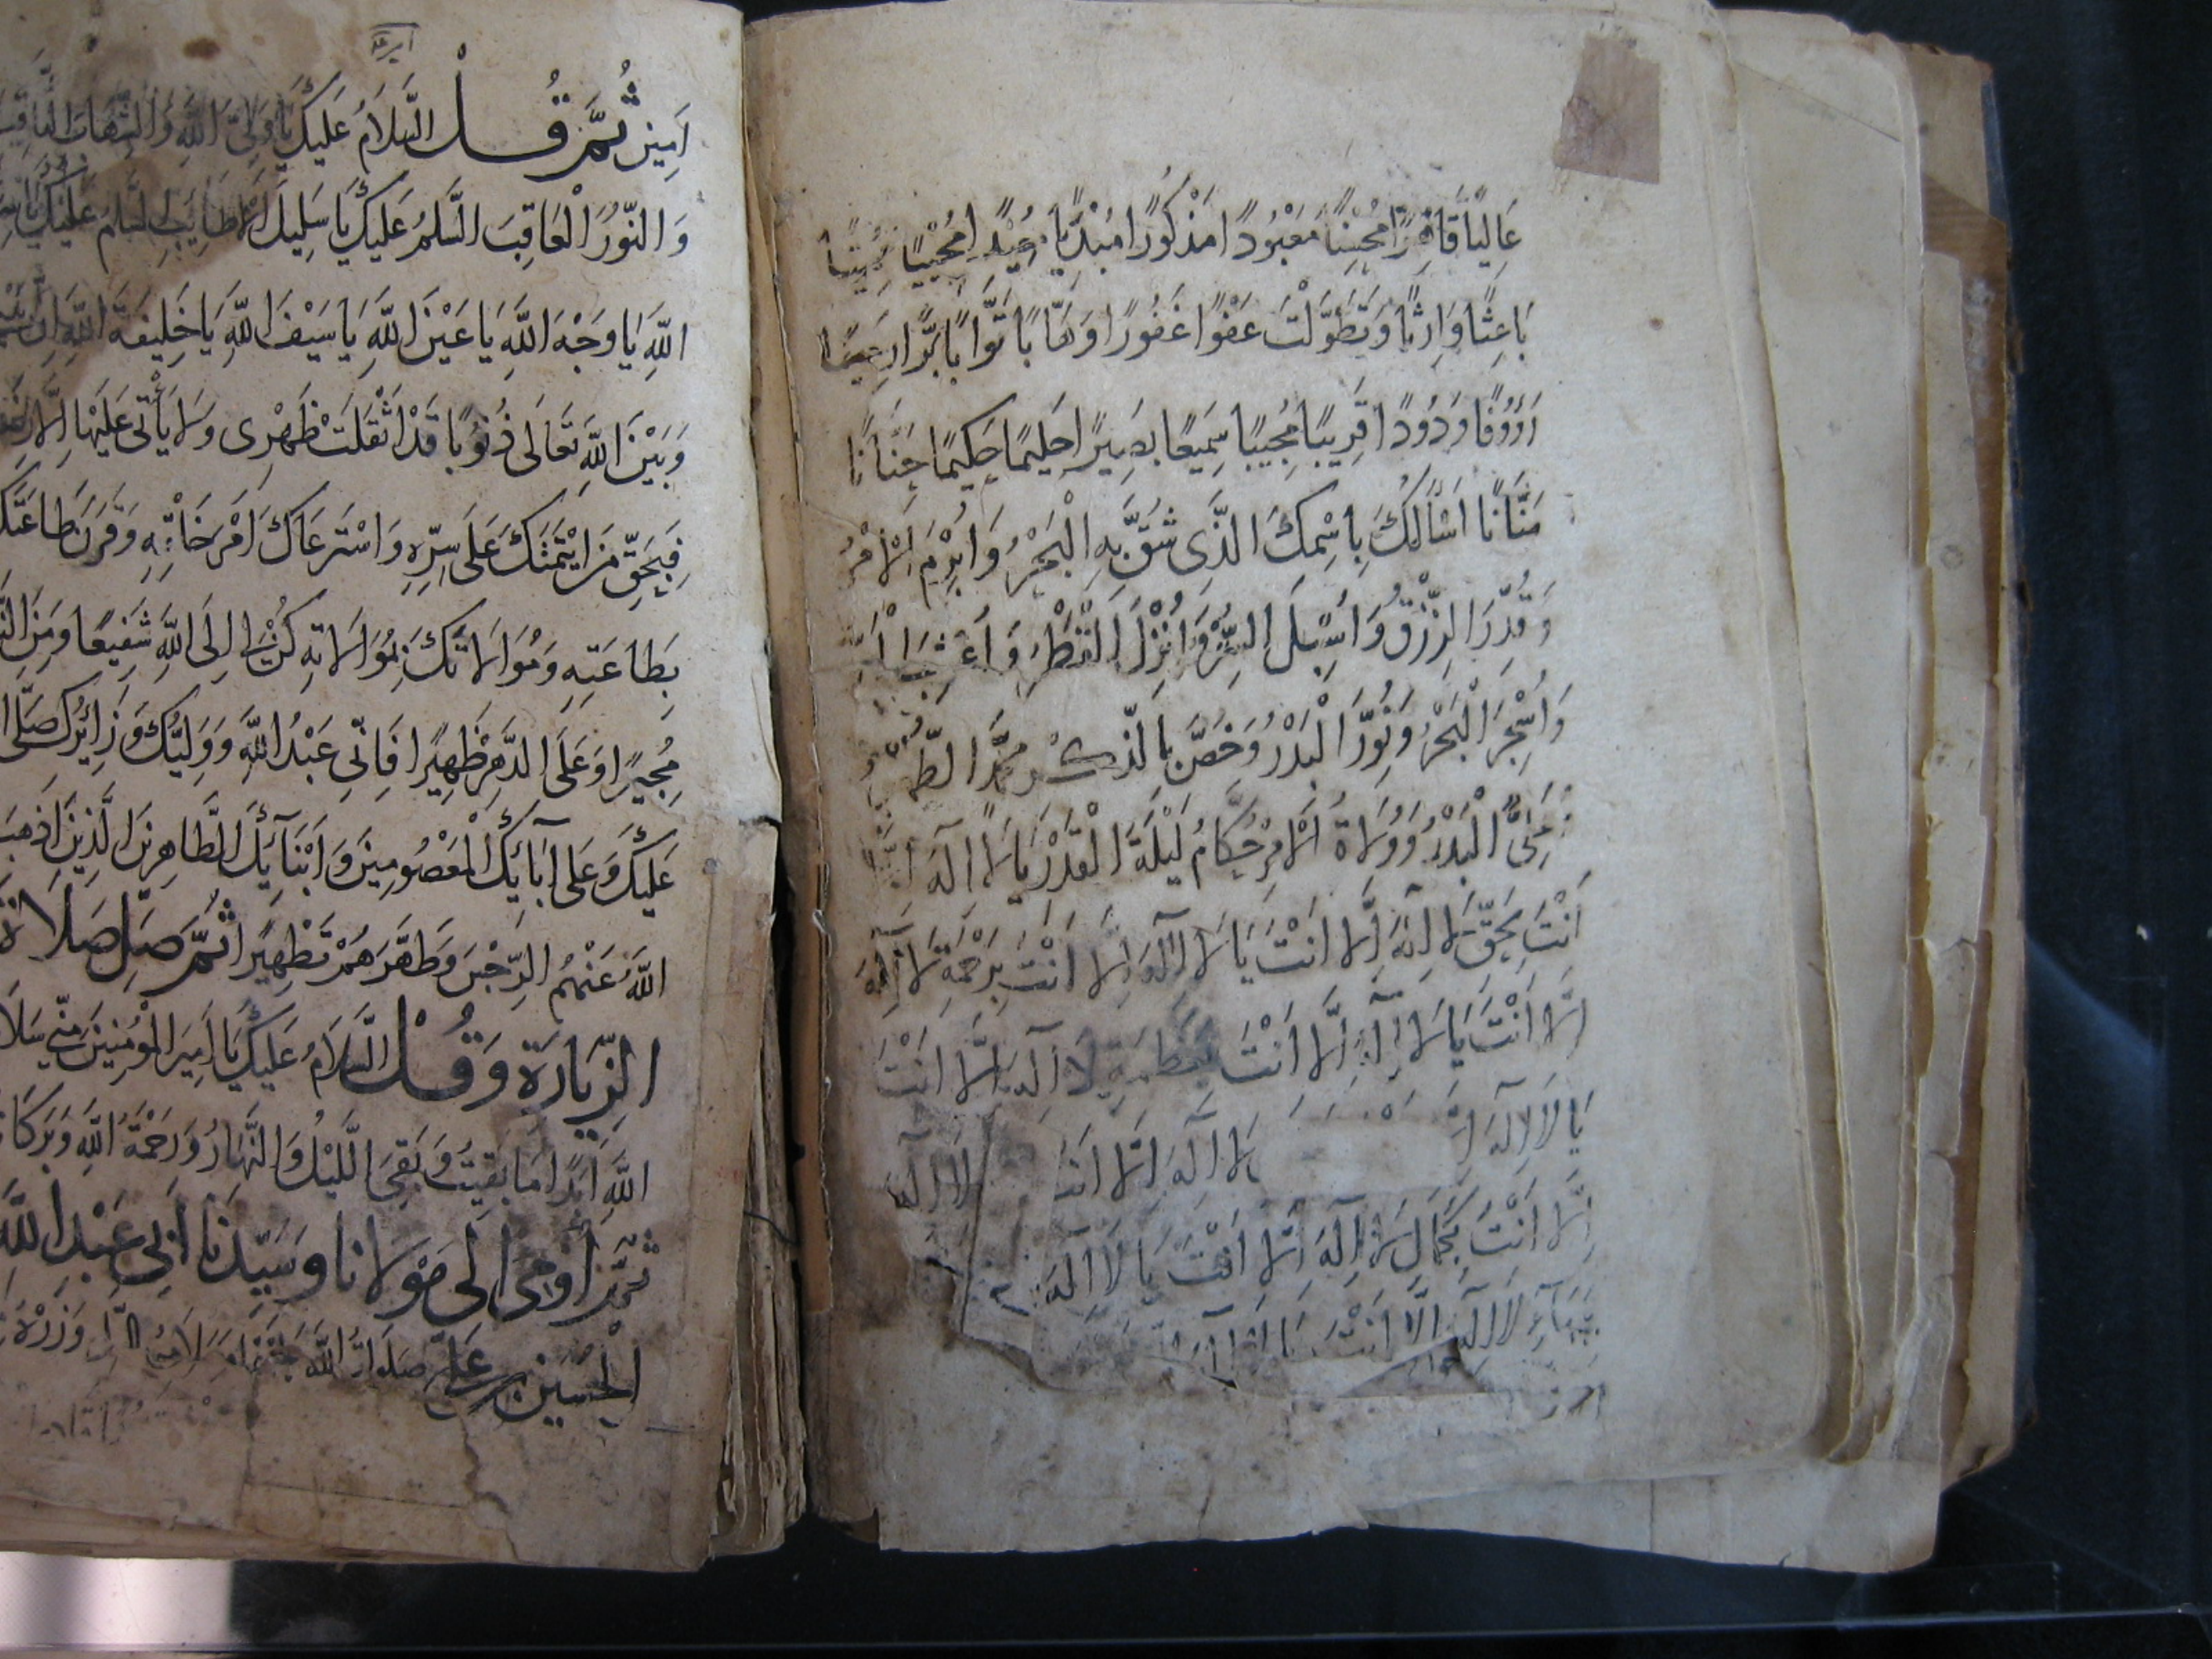 عَالِيًا قَاهِرًا مُحْسِنًا مَعْبُودًا مَذْكُورًا مُبْدِيًا مُعِيدًا مُحْيِيًا مُمِيتًا
بَاعِثًا وَارِثًا وَتَطَوَّلْتَ عَفْوًا غَفُورًا وَهَّابًا تَوَّابًا بَرًّا رَحِيمًا
رَؤُوفًا وَدُودًا قَرِيبًا مُجِيبًا سَمِيعًا بَصِيرًا حَلِيمًا حَكِيمًا حَنَّانًا
مَنَّانًا اَسْأَلُكَ بِاسْمِكَ الَّذِى شُقَّ بِهِ الْبَحْرُ وَابْرِمَ الْاَمْرُ
وَقُدِّرَ الرِّزْقُ وَاُسْبِلَ السِّتْرُ وَاُنْزِلَ الْقَطْرُ وَ
وَاُسْجِرَ الْبَحْرُ وَنُوِّرَ الْبَدْرُ وَخُصَّ بِالذِّكْرِ مُحَمَّدٌ
عَلِىٌّ الْبَدْرُ وَوُلَاةُ الْاَمْرِ حُكَّامُ لَيْلَةِ الْقَدْرِ يَا لَا اِلٰهَ اِلَّا
اَنْتَ بِحَقِّ لَا اِلٰهَ اِلَّا اَنْتَ يَا لَا اِلٰهَ اِلَّا اَنْتَ بِرَحْمَةِ لَا اِلٰهَ
اِلَّا اَنْتَ يَا لَا اِلٰهَ اِلَّا اَنْتَ بِعَظَمَةِ لَا اِلٰهَ اِلَّا اَنْتَ
يَا لَا اِلٰهَ لَا اِلٰهَ اِلَّا اَنْتَ لَا اِلٰهَ
اِلَّا اَنْتَ بِجَمَالِ لَا اِلٰهَ اِلَّا اَنْتَ يَا لَا اِلٰهَ
لَا اِلٰهَ اِلَّا اَنْتَ يَا لَا اِلٰهَ
اٰمِينَ ثُمَّ قُلْ السَّلَامُ عَلَيْكَ يَا وَلِىَّ اللّٰهِ وَالشِّهَابَ الثَّاقِبَ
وَالنُّورَ الْعَاقِبَ السَّلٰمُ عَلَيْكَ يَا سَلِيلَ الْاَطَايِبِ السَّلٰمُ عَلَيْكَ يَا
اللّٰهِ يَا وَجْهَ اللّٰهِ يَا عَيْنَ اللّٰهِ يَا سَيْفَ اللّٰهِ يَا خَلِيفَةَ اللّٰهِ اِنَّ بَيْنِى
وَبَيْنَ اللّٰهِ تَعَالَى ذُنُوبًا قَدْ اَثْقَلَتْ ظَهْرِى وَلَا يَأْتِى عَلَيْهَا اِلَّا
فَبِحَقِّ مَنِ ائْتَمَنَكَ عَلَى سِرِّهِ وَاسْتَرْعَاكَ اَمْرَ خَلْقِهِ وَقَرَنَ طَاعَتَكَ
بِطَاعَتِهِ وَمُوَالَاتَكَ بِمُوَالَاتِهِ كُنْ لِى اِلَى اللّٰهِ شَفِيعًا وَمِنَ
مُجِيرًا وَعَلَى الدَّهْرِ ظَهِيرًا فَاِنِّى عَبْدُ اللّٰهِ وَوَلِيُّكَ وَزَائِرُكَ صَلَّى
عَلَيْكَ وَعَلَى آبَائِكَ الْمَعْصُومِينَ وَاَبْنَآئِكَ الطَّاهِرِينَ الَّذِينَ اَذْهَبَ
اللّٰهُ عَنْهُمُ الرِّجْسَ وَطَهَّرَهُمْ تَطْهِيرًا ثُمَّ صَلِّ صَلَاةَ
الزِّيَارَةِ وَقُلْ السَّلَامُ عَلَيْكَ يَا اَمِيرَ الْمُؤْمِنِينَ مِنِّى سَلَامُ
اللّٰهِ اَبَدًا مَا بَقِيتُ وَبَقِىَ اللَّيْلُ وَالنَّهَارُ وَرَحْمَةُ اللّٰهِ وَبَرَكَاتُهُ
ثُمَّ اَوْمِ اِلَى مَوْلَانَا وَسَيِّدِنَا اَبِى عَبْدِ اللّٰهِ
الْحُسَيْنِ بْنِ عَلِىٍّ صَلَوَاتُ اللّٰهِ